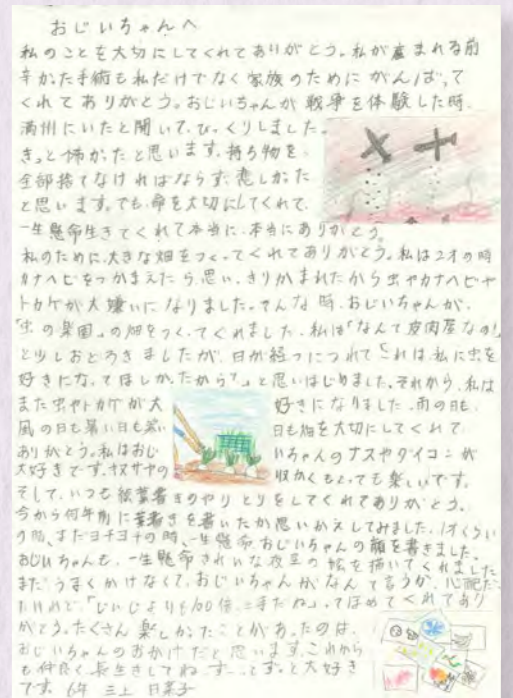 おじいちゃんへ
私のことを大切にしてくれてありがとう。私が産まれる前
辛かった手術も私だけでなく家族のためにがんばって
くれてありがとう。おじいちゃんが戦争を体験した時、
満州にいたと聞いて、びっくりしました。
きっと怖かったと思います。持ち物を、
全部捨てなければならず、悲しかった
と思います。でも、命を大切にしてくれて、
一生懸命生きてくれて本当に、本当にありがとう。
私のために、大きな畑をつくってくれてありがとう。私は2才の時
カナヘビをつかまえたら、思いっきりかまれたから虫やカナヘビや
トカゲが大嫌いになりました。そんな時、おじいちゃんが、
「虫の楽園」の畑をつくってくれました。私は「なんて皮肉屋なの!」
と少しおどろきましたが、日が経つにつれて「これは、私に虫を
好きになってほしかったから?」と思いはじめました。それから、私は
また虫やトカゲが大好きになりました。雨の日も、
風の日も暑い日も寒い日も畑を大切にしてくれて
ありがとう。私はおじいちゃんのナスやダイコンが
大好きです。キヌサヤの収かくもとっても楽しいです。
そして、いつも絵葉書きのやりとりをしてくれてありがとう。
今から何年前に葉書きを書いたか思いかえしてみました。1才くらい
の時、まだヨチヨチの時、一生懸命、おじいちゃんの顔を書きました。
おじいちゃんも、一生懸命きれいな枝豆の絵を描いてくれました。
まだうまくかけなくて、おじいちゃんがなんて言うか、心配だっ
たけれど、「じいじよりも100倍上手だね」ってほめてくれてあり
がとう。たくさん楽しかったことがあったのは、
おじいちゃんのおかげだと思います。これから
も仲良く長生きしてね。ずーっとずっと大好き
です。6年 三上 日菜子